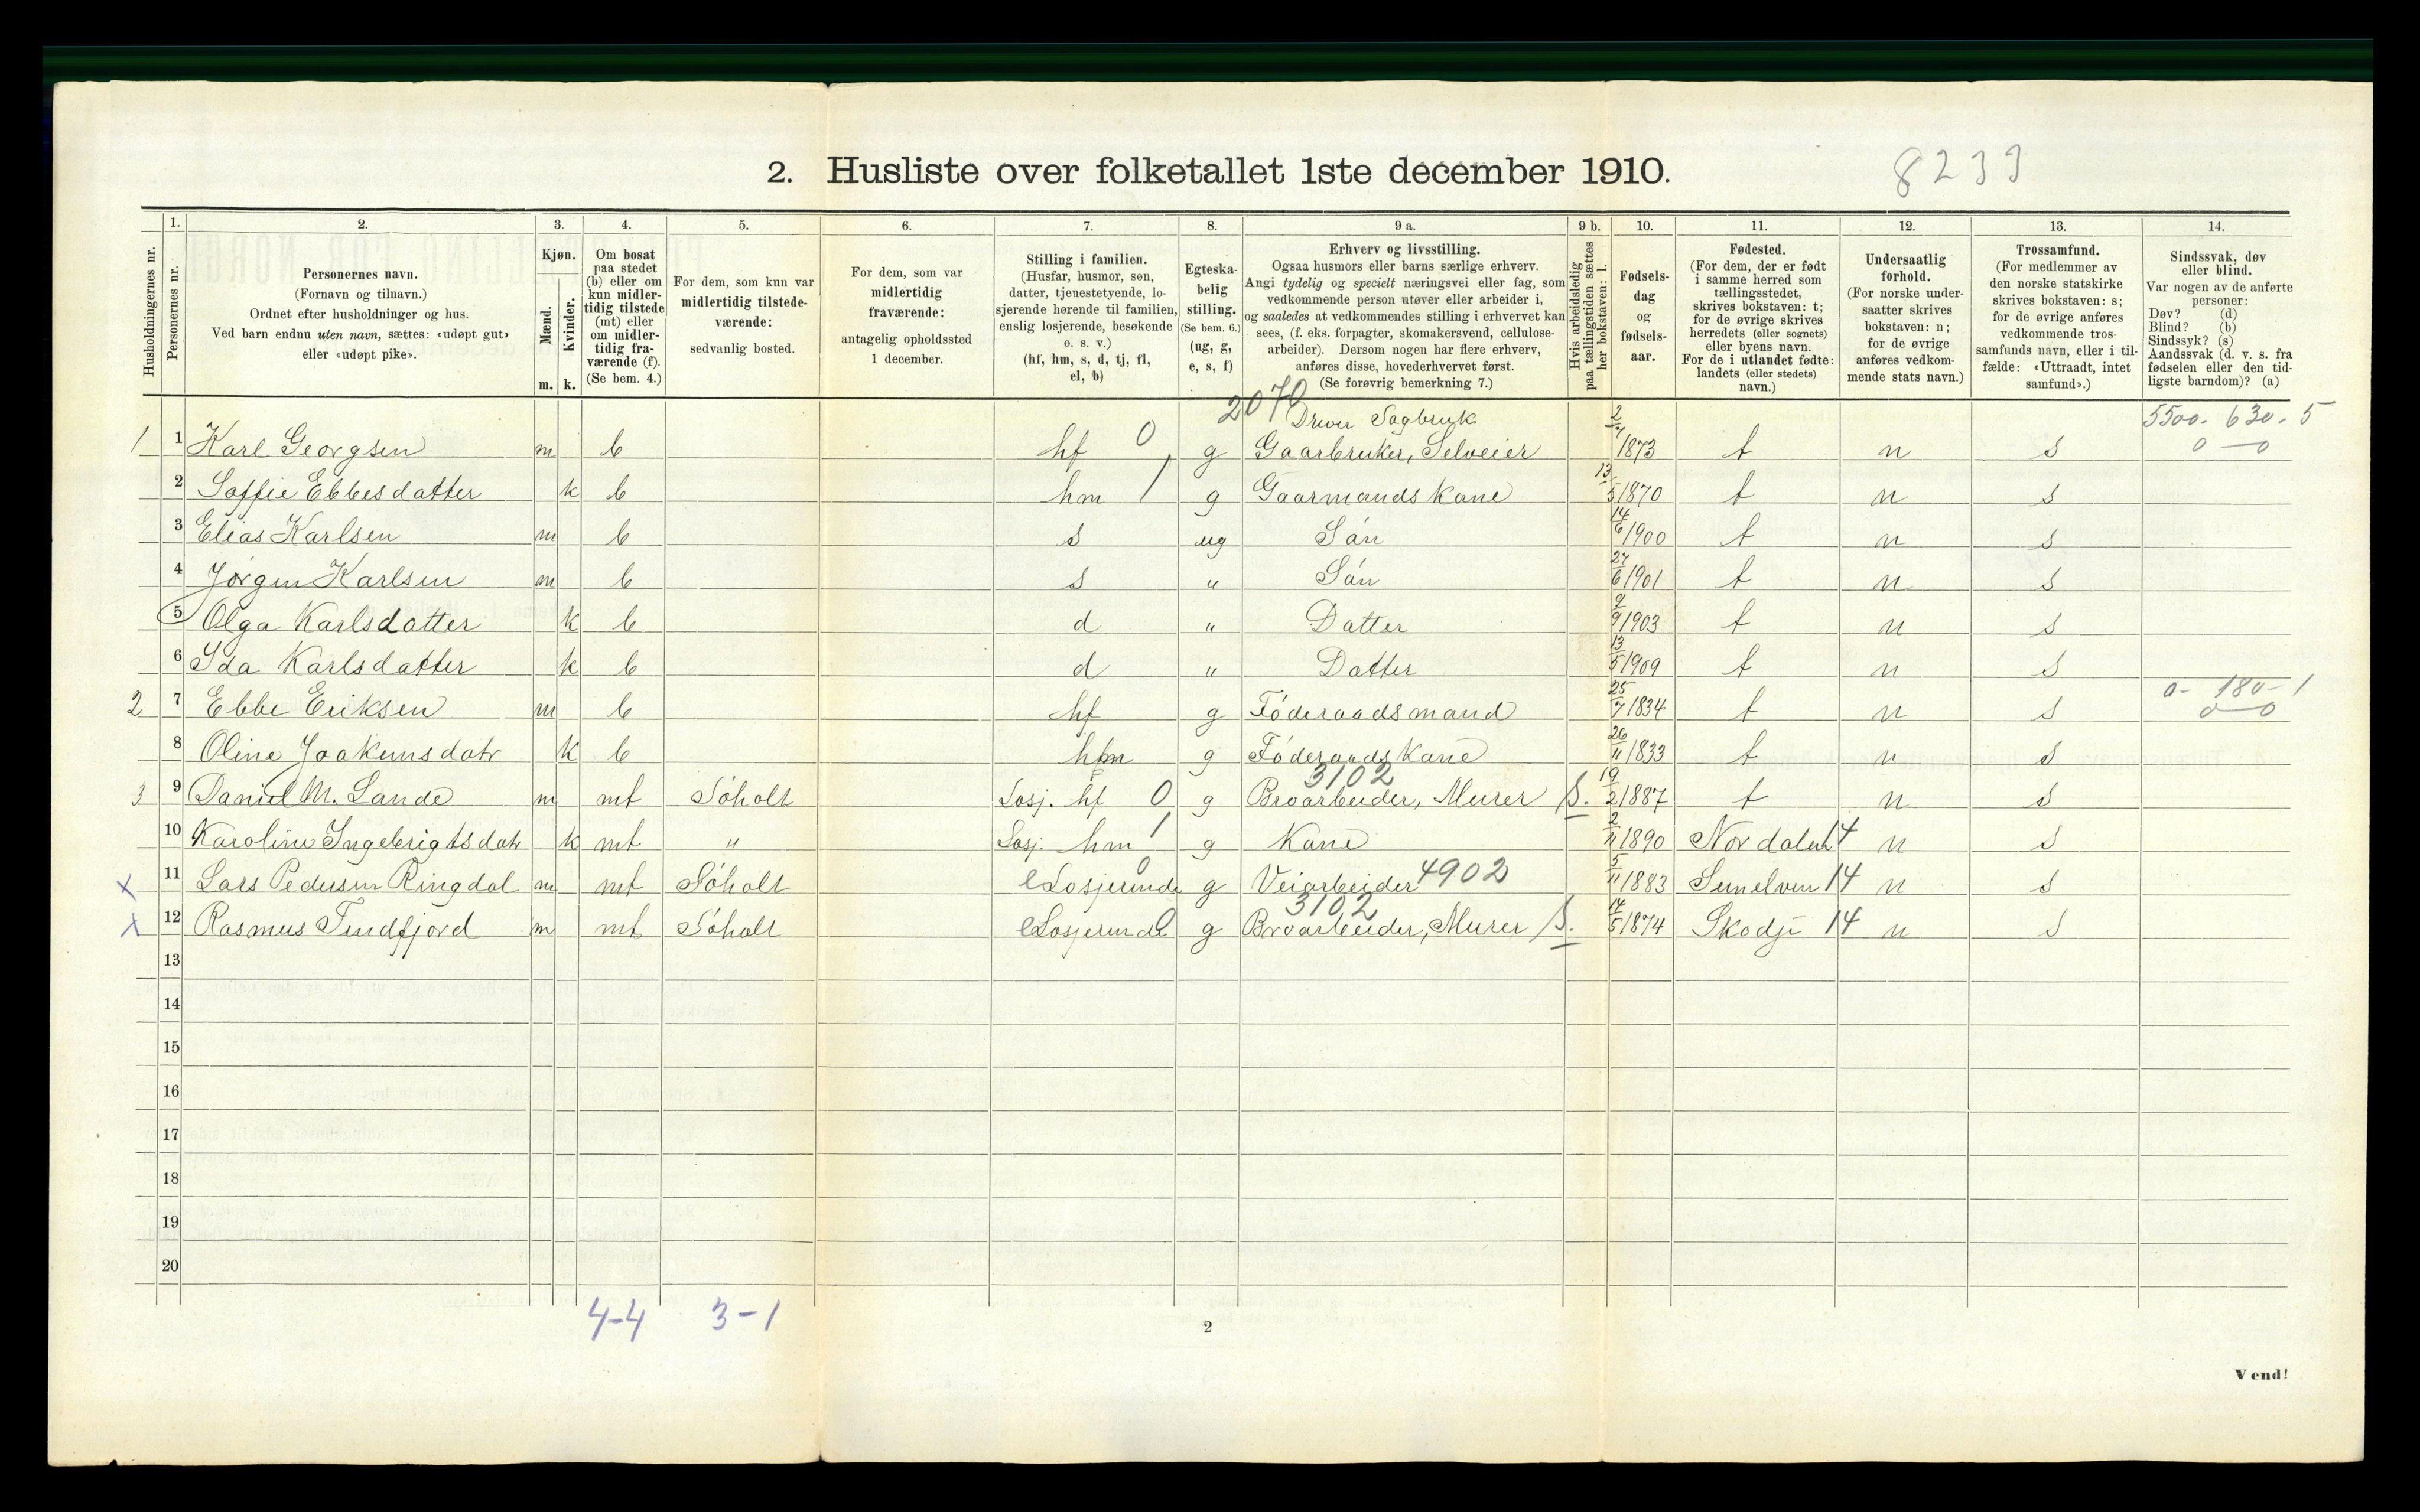 2. Husliste over folketallet 1ste december 1910.
8233
1. 2. 3. 4. 5. 6. 7. 8. 9 a. 9 b. 10. 11. 12. 13. 14.
Husholdningernes nr.
Personernes nr.
Personernes navn.
(Fornavn og tilnavn.)
Ordnet efter husholdninger og hus.
Ved barn endnu uten navn, sættes: «udøpt gut»
eller «udøpt pike».
Kjøn.
Mænd.
Kvinder.
m. k.
Om bosat
paa stedet
(b) eller om
kun midler-
tidig tilstede
(mt) eller
om midler-
tidig fra-
værende (f).
(Se bem. 4.)
For dem, som kun var
midlertidig tilstede-
værende:
sedvanlig bosted.
For dem, som var
midlertidig
fraværende:
antagelig opholdssted
1 december.
Stilling i familien.
(Husfar, husmor, søn,
datter, tjenestetyende, lo-
sjerende hørende til familien,
enslig losjerende, besøkende
o. s. v.)
(hf, hm, s, d, tj, fl,
el, b)
Egteska-
belig
stilling.
(Se bem. 6.)
(ug, g,
e, s, f)
Erhverv og livsstilling.
Ogsaa husmors eller barns særlige erhverv.
Angi tydelig og specielt næringsvei eller fag, som
vedkommende person utøver eller arbeider i,
og saaledes at vedkommendes stilling i erhvervet kan
sees, (f. eks. forpagter, skomakersvend, cellulose-
arbeider). Dersom nogen har flere erhverv,
anføres disse, hovederhvervet først.
(Se forøvrig bemerkning 7.)
Hvis arbeidsledig
paa tællingstiden sættes
her bokstaven: l.
Fødsels-
dag
og
fødsels-
aar.
Fødested.
(For dem, der er født
i samme herred som
tællingsstedet,
skrives bokstaven: t;
for de øvrige skrives
herredets (eller sognets)
eller byens navn.
For de i utlandet fødte:
landets (eller stedets)
navn.)
Undersaatlig
forhold.
(For norske under-
saatter skrives
bokstaven: n;
for de øvrige
anføres vedkom-
mende stats navn.)
Trossamfund.
(For medlemmer av
den norske statskirke
skrives bokstaven: s;
for de øvrige anføres
vedkommende tros-
samfunds navn, eller i til-
fælde: «Uttraadt, intet
samfund».)
Sindssvak, døv
eller blind.
Var nogen av de anførte
personer:
Døv? (d)
Blind? (b)
Sindssyk? (s)
Aandssvak (d. v. s. fra
fødselen eller den tid-
ligste barndom)? (a)
2070 Driver Sagbruk 5500. 630. 5
1 1 Karl Georgsen m b hf 0 g Gaarbruker, Selveier 2/7 1873 t n s 0 — 0
2 Soffie Ebbesdatter k b hm 1 g Gaarmands Kane 13/5 1870 t n s
3 Elias Karlsen m b s ug Sán 14/6 1900 t n s
4 Jørgen Karlsen m b s " Sán 27/6 1901 t n s
5 Olga Karlsdatter k b d " Datter 9/9 1903 t n s
6 Ida Karlsdatter k b d " Datter 13/5 1909 t n s
0- 180- 1
2 7 Ebbe Eriksen m b hf g Føderaadsmand 25/7 1834 t n s 0 — 0
8 Oline Joakimsdatr k b hm g Føderaads Kane 26/11 1833 t n s
3102
3 9 Daniel M. Lande m mt Søholt Losj. hf 0 g Broarbeider, Murer S. 19/2 1887 t n s
10 Karoline Ingebrigtsdatr k mt " Losj. hm 1 g Kane 2/11 1890 Nordalen 14 n s
x 11 Lars Pedersen Ringdal m mt Søholt eLosjerende 0 g Veiarbeider 4902 5/11 1883 Sunelven 14 n s
3102
x 12 Rasmus Tindfjord m mt Søholt eLosjerende g Broarbeider, Murer S. 14/5 1874 Skodje 14 n s
13
14
15
16
17
18
19
20
4-4 3-1
2
Vend!